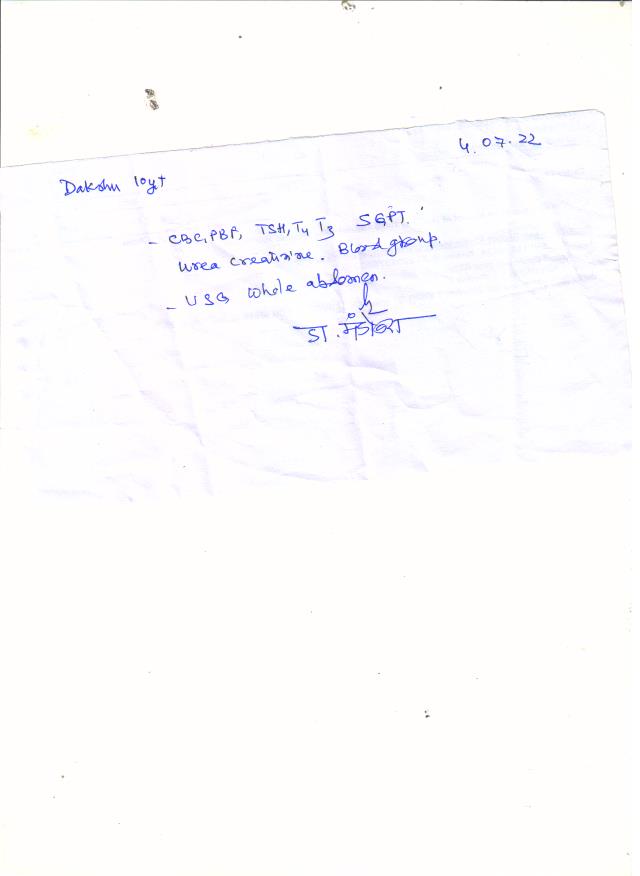 4.07.22
Dakshu 10yr
- CBC, PBF, TSH, T4 T3 SGPT.
Urea creatinine. Blood group.
- USG Whole abdomen.
डा.